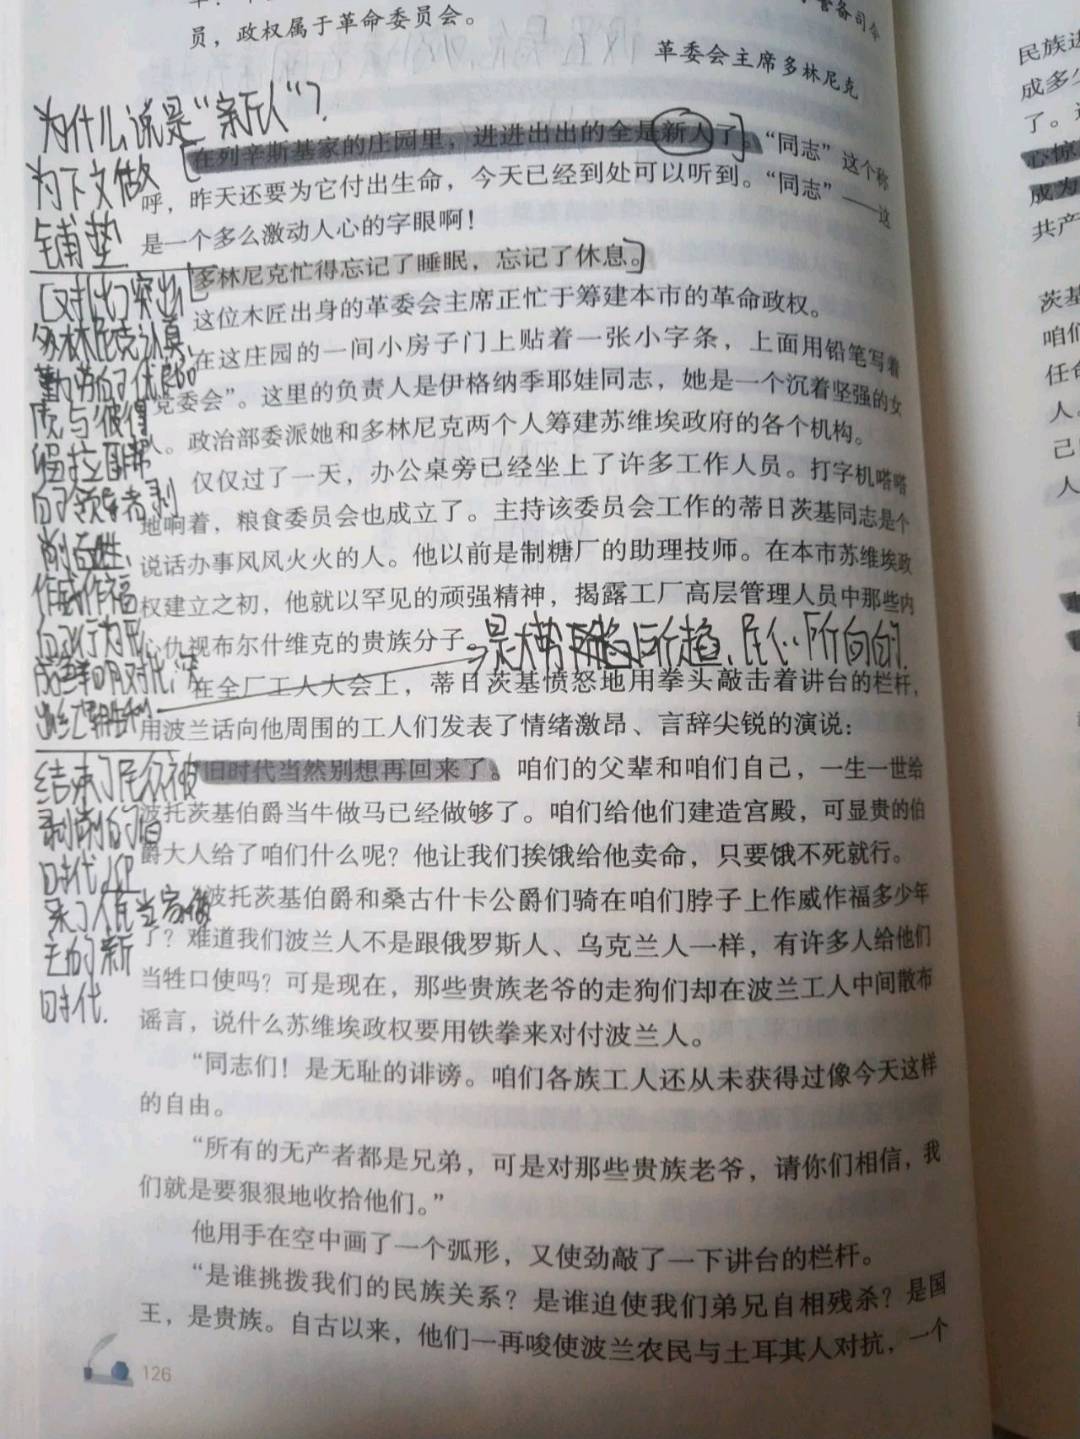 员，政权属于革命委员会。
警备司令
革委会主席多林尼克
为什么说是“新人”？
为下文做
铺垫
在列辛斯基家的庄园里，进进出出的全是新人了。“同志”这个称
呼，昨天还要为它付出生命，今天已经到处可以听到。“同志”——这
是一个多么激动人心的字眼啊！
多林尼克忙得忘记了睡眠，忘记了休息。
这位木匠出身的革委会主席正忙于筹建本市的革命政权。
在这庄园的一间小房子门上贴着一张小字条，上面用铅笔写着
“党委会”。这里的负责人是伊格纳季耶娃同志，她是一个沉着坚强的女
人。政治部委派她和多林尼克两个人筹建苏维埃政府的各个机构。
仅仅过了一天，办公桌旁已经坐上了许多工作人员。打字机嗒嗒
地响着，粮食委员会也成立了。主持该委员会工作的蒂日茨基同志是个
说话办事风风火火的人。他以前是制糖厂的助理技师。在本市苏维埃政
权建立之初，他就以罕见的顽强精神，揭露工厂高层管理人员中那些内
心仇视布尔什维克的贵族分子。
[对比]突出
多林尼克认真、
勤劳的优良品
质与彼得
留拉
的领导者剥
削百姓，
作威作福
的行为形
成鲜明对比，
是大势所趋，民心所向的
在全厂工人大会上，蒂日茨基愤怒地用拳头敲击着讲台的栏杆，
用波兰话向他周围的工人们发表了情绪激昂、言辞尖锐的演说：
“旧时代当然别想再回来了。咱们的父辈和咱们自己，一生一世给
波托茨基伯爵当牛做马已经做够了。咱们给他们建造宫殿，可显贵的伯
爵大人给了咱们什么呢？他让我们挨饿给他卖命，只要饿不死就行。
“波托茨基伯爵和桑古什卡公爵们骑在咱们脖子上作威作福多少年
了？难道我们波兰人不是跟俄罗斯人、乌克兰人一样，有许多人给他们
当牲口使吗？可是现在，那些贵族老爷的走狗们却在波兰工人中间散布
谣言，说什么苏维埃政权要用铁拳来对付波兰人。
结束了民众被
剥削的旧
时代，迎
来了人民当家做
主的新
时代.
“同志们！是无耻的诽谤。咱们各族工人还从未获得过像今天这样
的自由。
“所有的无产者都是兄弟，可是对那些贵族老爷，请你们相信，我
们就是要狠狠地收拾他们。”
他用手在空中画了一个弧形，又使劲敲了一下讲台的栏杆。
“是谁挑拨我们的民族关系？是谁迫使我们弟兄自相残杀？是国
王，是贵族。自古以来，他们一再唆使波兰农民与土耳其人对抗，一个
126
民族进
成多少
了。
心惊
成为
共产
茨基
咱们
任
人。
己
人